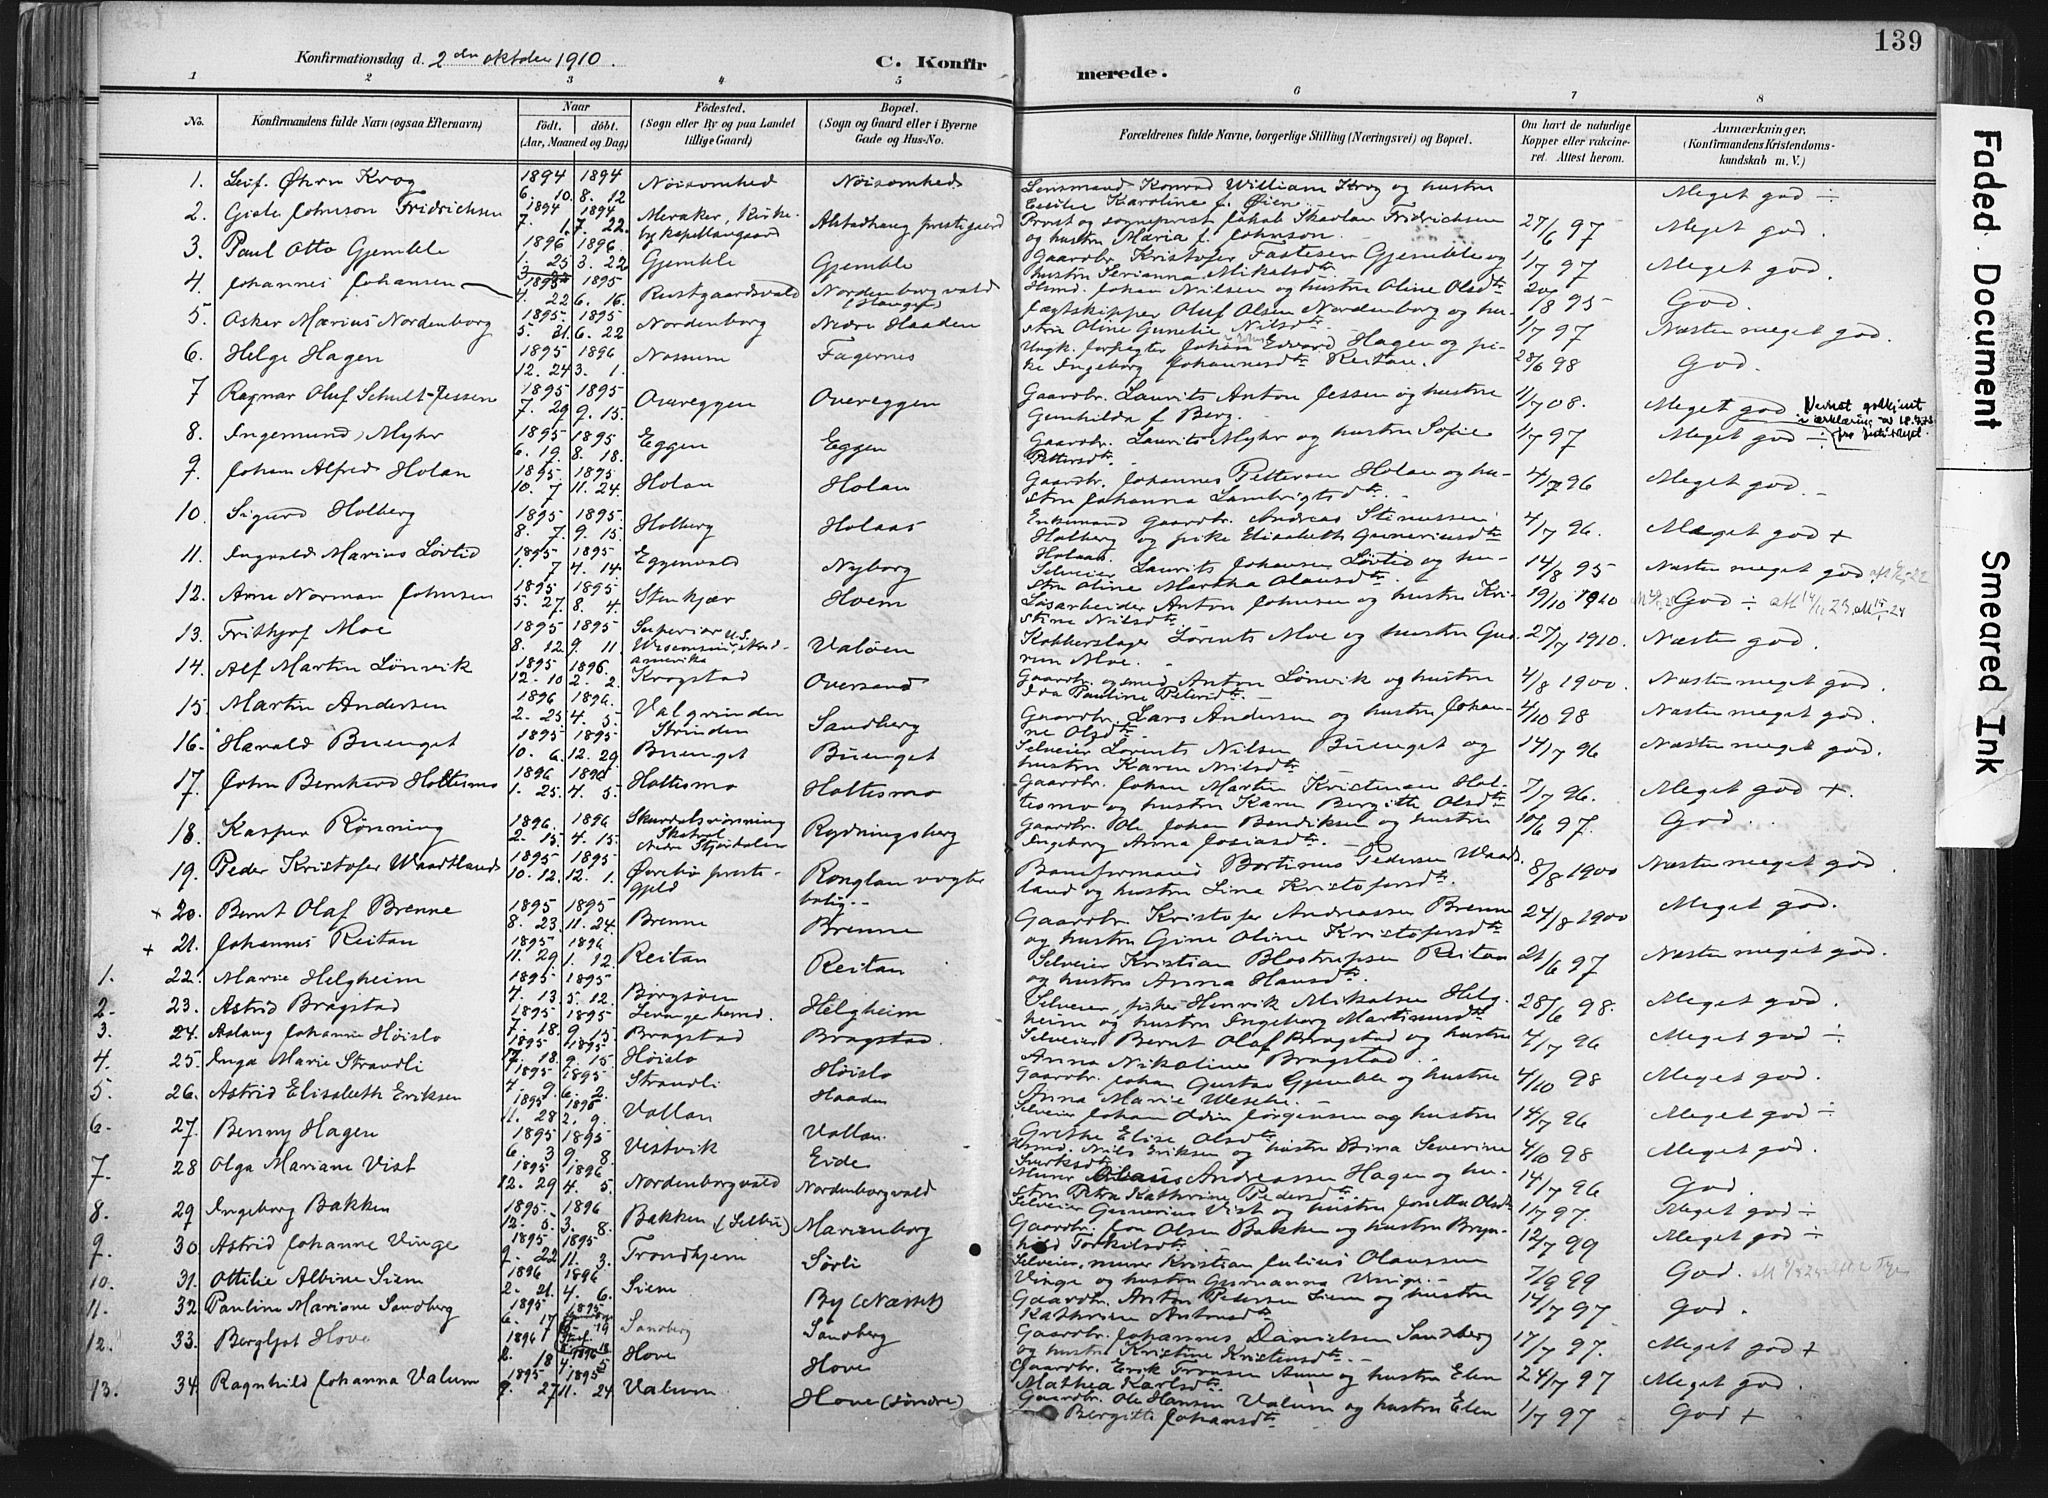 139
Konfirmationsdag d. 2den oktober 1910.
C. Konfirmerede.
1 2 3 4 5 6 7 8
No.
Konfirmandens fulde Navn (ogsaa Efternavn)
Naar
Födt. döbt.
(Aar, Maaned og Dag)
Födested.
(Sogn eller By og paa Landet tillige Gaard)
Bopæl.
(Sogn og Gaard eller i Byerne Gade og Hus-No.
Forældrenes fulde Navne, borgerlige Stilling (Næringsvei) og Bopæl.
Om havt de naturlige Kopper eller vakcineret. Attest herom.
Anmærkninger.
(Konfirmandens Kristendomskundskab m. V.)
Faded Document Smeared Ink
1. Leif Öhrn Krog 1894 6. 10. 1894 8. 12 Nöisomhed Nöisomhed Lensmand Konrad William Krog og hustru Karoline f. Öien. Meget god ÷
2. Johnson Fridrichsen 1894 7. 1. 1894 7. 22. Meraker, Kirkeby kapellangaard Alstadhaug prestegaard Prost og sogneprest Jakob Skavlan Fridrichsen og hustru Maria f. Johnson. 27/6 97 Meget god.
3. Paul Otto Gjemble 1896 1. 25 1896 3. 22 Gjemble Gjemble Gaardbr. Kristofer Gjemble og hustru Serianna Mikalsdtr. 1/7 97 Meget god.
4. Johannes Johansen 1895 4. 22 1895 6. 16. Rustgaardsvald Nordenborgvald Husmd. Johan Nilsen og hustru Oline Olsdtr. /8 95 God.
5. Oskar Marius Nordenborg 1895. 5. 31. 1895 6. 22 Nordenborg Nedre Haaden Jægtskipper Oluf Olsen Nordenborg og hustru Oline Gunelie Nilsdtr. 1/7 97 Næsten meget god.
6. Helge Hagen 1895 12. 24 1896 3. 1. Nossum Fagernes Ungk. forpagter Johan Edvard Hagen og pike Ingeborg Johannesdtr Reitan. 28/6 98 God.
7 Ragnar Oluf Schult-Jessen 1895 7. 29 1895 9. 15. Overeggen Overeggen Gaardbr. Laurits Anton Jessen og hustru Gunhilda f Berg. 1/7 08. Meget god
8. Ingemund Myhr 1895 6. 19. 1895 8. 18. Eggen Eggen Gaardbr. Laurits Myhr og hustru Sofie Pettersdtr. 1/7 97 Meget god ÷
9. Johan Alfred Holan 1895 10. 7 1895 11. 24. Holan Holan Gaardbr. Johannes Petterson Holan og hustru Johanna Lambrigtsdtr. 4/7 96 Meget god.
10. Sigurd Holberg 1895 8. 7. 1895. 9. 15. Holberg Holaas Enkemand Gaardbr. Andreas Stinussen Holberg og pike Elisabeth Gunneriusdtr Holaas. 4/7 96. Meget god +
11. Ingvald Marius Lövtid 1895 1. 7 1895 4. 14. Eggenvald Nyborg Selveier Laurits Johansen Lövtid og hustru Oline Martha Olausdtr. 14/8 95 Næsten meget god
12. Arne Norman Johnsen 1895 5. 27. 1895 8. 4. Stenkjær Hoem Lösarbeider Anton Johnsen og hustru Kristine Nilsdtr. 19/10 1910 God ÷
13. Frithjof Moe 1895 8. 12 1895 9. 11. Superior Wisconsin, U.S. Nordamerika Valöen Kobberslager Lorents Moe og hustru Gudrun Moe. 27/7 1910. Næsten god.
14. Alf Martin Lönvik 1895 12. 10 1896. 2. 2. Krogstad Oversand Gaardbr. og smed Anton Lönvik og hustru Ida Pauline Petersdtr. 4/8 1900. Næsten meget god.
15. Martin Andersen 1896 2. 23 1896. 4. 5. Valgrinden Strinden Sandberg Gaardbr. Lars Andersen og hustru Johanne Olsdtr. 4/10 98 Næsten meget god.
16. Harald Buenget 1895 10. 6. 1895 12. 29 Buenget Buenget Selveier Lorents Nilsen Buenget og hustru Karen Nilsdtr. 14/7 96 Næsten meget god.
17. John Bernhard Holtesmo 1896 1. 25 1896 4. 5. Holtesmo Holtesmo Gaardbr. Johan Martin Kristensen Holtesmo og hustru Karen Bergitte Olsdtr 7/7 96. Meget god +.
18. Kasper Rönning 1896. 2. 15 1896 4. 15. Skatval Nedre Stjördalen Rydningsberg Gaardbr. Ole Johan Bendiksen og hustru Ingeborg Anna Josiasdtr. 10/6 97. God.
19. Peder Kristofer Waadtland 1895 10. 12. 1895 12. 1. Örebö prestegjeld Ronglan vogterbolig. Baneformand Bertinus Pedersen Waadtland og hustru Lina Kristofersdtr. 8/8 1900 Næsten meget god
+ 20. Bernt Olaf Brenne 1895 8. 23. 1895 11. 24 Brenne Brenne Gaardbr. Kristofer Andreassen Brenne og hustru Gine Oline Kristofersdtr 24/8 1900 Meget god.
+ 21. Johannes Reitan 1895 11. 29 1896 1. 12. Reitan Reitan Selveier Kristian Blostrupsen Reitan og hustru Anna Hansdtr. 21/6 97 Næsten meget god.
1. 22. Marie Helgheim 1895 4. 13. 1895 5. 12. Borgsöen Levanger herred. Helgheim Selveier, fisker Henrik Mikalsen Helgheim og hustru Ingeborg Martinusdtr 28/6 98. Meget god.
2. 23. Astrid Bragstad 1895 7. 18 1895 9. 15 Bragstad Bragstad. Selveier Bernt Olaf Bragstad og hustru Anna Nikoline Bragstad. 4/7 96 Meget god ÷
3. 24. Aslaug Johanne Höislo 1895 18. 1895 9. 15 Höislo Höislo Gaardbr. Johan Gustav Gjemble og hustru Anna Marie 4/10 98 Meget god.
4. 25. Inga Marie Strandli 1895 4. 9. 1895 6. 2. Strandli Haaden Selveier Johan Odin Jörgensen og hustru Grethe Elise Olsdtr 14/7 96 Meget god ÷
5. 26. Astrid Elisabeth Eriksen 1895 11. 28 1896 2. 9. Vollan Vollan. Nils Eriksen og hustru Bina Severine 4/10 98 Meget god.
6. 27. Benny Hagen 1895 6. 3 1895 9. 8. Vestvik Eide Murer Olaus Andreassen Hagen og hustru Petra Kathrine Pedersdtr. 14/7 96 God.
7. 28 Olga Mariane Vist 1895 12. 29 1896 4. 5. Nordenborgvald Nordenborgvald Selveier Gunerius Vist og hustru Jonetta Olsdtr 1/7 97. Meget god ÷
8. 29 Ingeborg Bakken 1895 12. 5. 1896 3. 8. Bakken (Selbu) Marienborg Gaardbr. Jon Olsen Bakken og hustru Brynhild Torkilsdtr. 12/7 99 Meget god ÷
9. 30 Astrid Johanne Vinge 1895 9. 22 1895 11. 3. Trondhjem Sörli Selveier, murer Kristian Julius Olaussen Vinge og hustru Gurianna Vinge. 7/9 99 God.
10. 31. Ottilie Albine Siem 1896 2. 21 1896 4. 6. Siem By (Næsset) Gaardbr. Anton Petersen Siem og hustru Kathrine Antonsdtr 14/7 97. God.
11. 32 Pauline Mariane Sandberg 1895 6. 17 1895 Sandberg Sandberg Gaardbr. Johannes Danielsen Sandberg og hustru Kristine Kristensdtr. 17/7 97. Meget god +
12. 33. Bergljot Hove 1896 2. 18 1896 4. 5 Hove Hove Gaardbr. Erik Tronsen Aune og hustru Elen Mathea Karlsdtr. 24/7 97 Meget god.
13. 34 Ragnhild Johanna Valum 1895 9. 27 1895 11. 24 Valum Hove (söndre) Gaardbr. Ole Hansen Valum og hustru Elen Bergitte Johansdtr. 1/7 97 God +